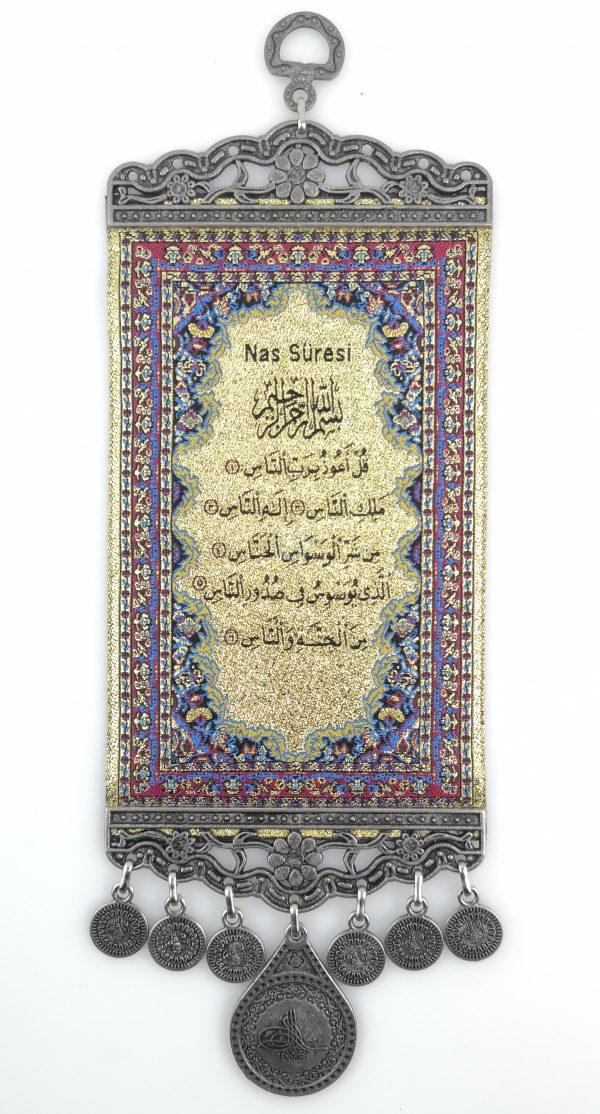 Nas Sûresi
بسم الله الرحمن الرحيم
قُلْ أَعُوذُ بِرَبِّ ٱلنَّاسِ ١
مَلِكِ ٱلنَّاسِ ٢ إِلَٰهِ ٱلنَّاسِ ٣
مِن شَرِّ ٱلْوَسْوَاسِ ٱلْخَنَّاسِ ٤
ٱلَّذِى يُوَسْوِسُ فِى صُدُورِ ٱلنَّاسِ ٥
مِنَ ٱلْجِنَّةِ وَٱلنَّاسِ ٦